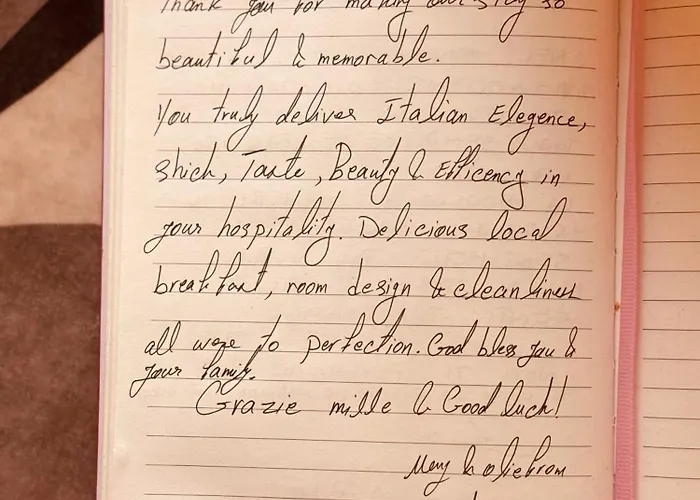 Thank you for making our stay so
beautiful & memorable.
You truly deliver Italian Elegence,
shich, Taste, Beauty & Efficency in
your hospitality. Delicious local
breakfast, room design & cleanliness
all were to perfection. God bless you &
your family.
Grazie mille & Good luck!